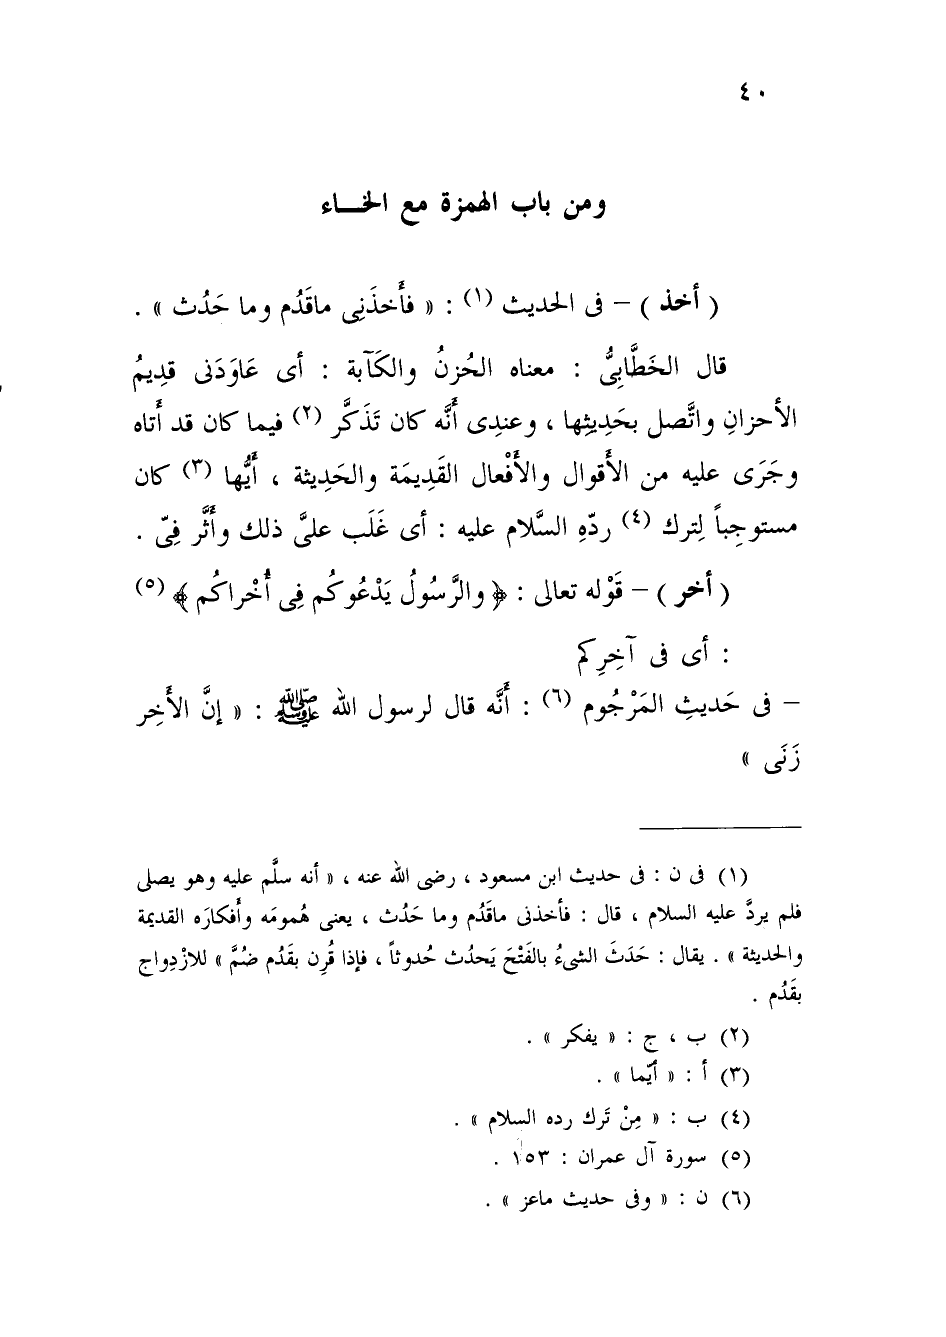 ٤٠
ومن باب الهمزة مع الخـــاء
( أخذ ) – فى الحديث (١) : « فأَخذَنِى ماقَدُم وما حَدُث » .
قال الخَطَّابِىُّ : معناه الحُزنُ والكَآبة : أى عَاوَدَنى قدِيمُ
الأحزانِ واتَّصل بحَدِيثِها ، وعندِى أَنَّه كان تَذَكَّر (٢) فيما كان قد أَتاه
وجَرَى عليه من الأَقوال والأَفْعال القَدِيمَة والحَدِيثة ، أَيُّها (٣) كان
مستوجِباً لِترك (٤) ردّهِ السَّلام عليه : أى غَلَب علىَّ ذلك وأَثَّر فِىّ .
( أخر ) – قَوْله تعالى : ﴿ والرَّسُولُ يَدْعُوكُم فِى أُخْراكُم ﴾ (٥)
: أى فى آخِرِكم
– فى حَديثِ المَرْجُوم (٦) : أَنَّه قال لرسول الله ﷺ : « إنَّ الأَخِر
زَنَى »
(١) فى ن : فى حديث ابن مسعود ، رضى الله عنه ، « أنه سلَّم عليه وهو يصلى
فلم يردَّ عليه السلام ، قال : فأخذنى ماقَدُم وما حَدُث ، يعنى هُمومَه وأَفكارَه القديمة
والحديثة » . يقال : حَدَثَ الشىءُ بالفَتْحَ يَحدُث حُدوثاً ، فإذا قُرِن بقَدُم ضُمَّ » للازْدِواج
بقَدُم .
(٢) ب ، ج : « يفكر » .
(٣) أ : « أَيّما » .
(٤) ب : « مِنْ تَرك رده السلام » .
(٥) سورة آل عمران : ١٥٣ .
(٦) ن : « وفى حديث ماعز » .